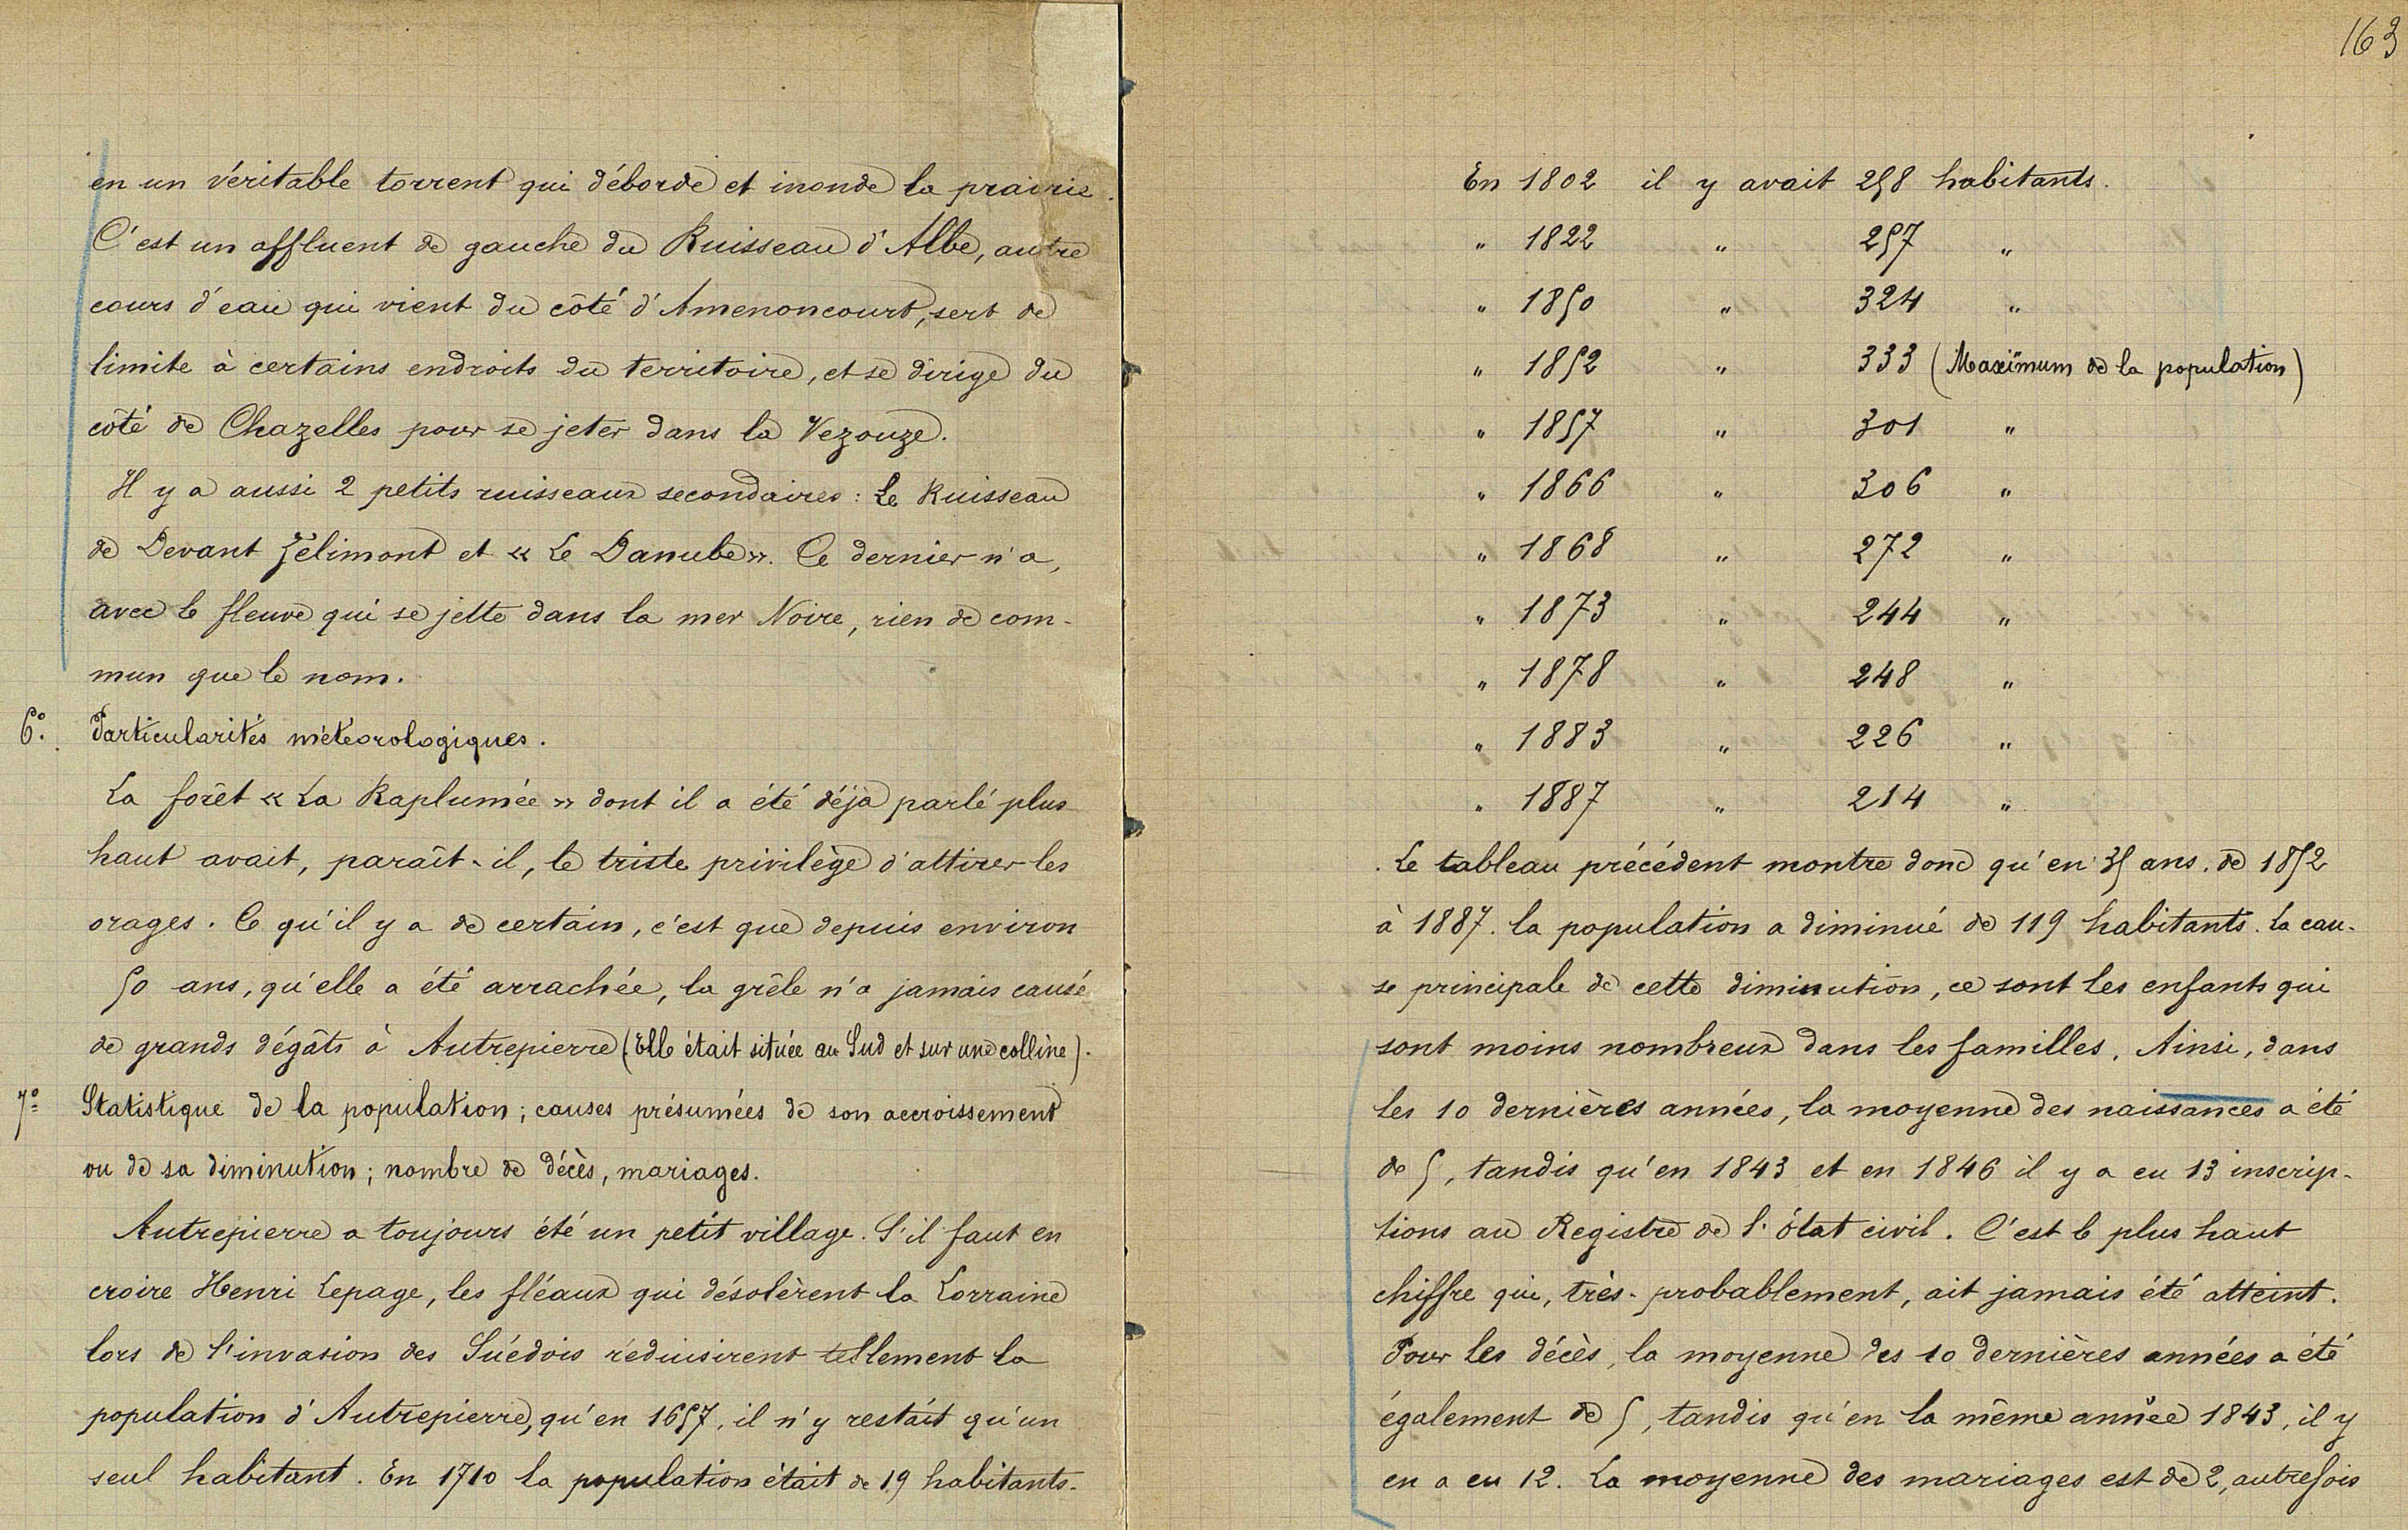 en un véritable torrent qui déborde et inonde la prairie.
C'est un affluent de gauche du Ruisseau d'Albe, autre
cours d'eau qui vient du côté d'Amenoncourt, sert de
limite à certains endroits du territoire, et se dirige du
côté de Chazelles pour se jeter dans la Vezouze.
Il y a aussi 2 petits ruisseaux secondaires : Le Ruisseau
de Devant Félimont et « Le Danube ». Ce dernier n'a,
avec le fleuve qui se jette dans la mer Noire, rien de com-
mun que le nom.
6°. Particularités météorologiques.
La forêt « La Raplumée » dont il a été déjà parlé plus
haut avait, paraît-il, le triste privilège d'attirer les
orages. Ce qu'il y a de certain, c'est que depuis environ
50 ans, qu'elle a été arrachée, la grêle n'a jamais causé
de grands dégâts à Autrepierre (Elle était située au Sud et sur une colline).
7° Statistique de la population ; causes présumées de son accroissement
ou de sa diminution ; nombre de décès, mariages.
Autrepierre a toujours été un petit village. S'il faut en
croire Henri Lepage, les fléaux qui désolèrent la Lorraine
lors de l'invasion des Suédois réduisirent tellement la
population d'Autrepierre, qu'en 1657, il n'y restait qu'un
seul habitant. En 1710 la population était de 19 habitants.
163
En 1802 il y avait 258 habitants.
" 1822 " 257 "
" 1850 " 324 "
" 1852 " 333 (Maximum de la population)
" 1857 " 301 "
" 1866 " 306 "
" 1868 " 272 "
" 1873 " 244 "
" 1878 " 248 "
" 1883 " 226 "
" 1887 " 214 "
Le tableau précédent montre donc qu'en 35 ans. de 1852
à 1887. la population a diminué de 119 habitants. La cau-
se principale de cette diminution, ce sont les enfants qui
sont moins nombreux dans les familles. Ainsi, dans
les 10 dernières années, la moyenne des naissances a été
de 5, tandis qu'en 1843 et en 1846 il y a eu 13 inscrip-
tions au Registre de l'état civil. C'est le plus haut
chiffre qui, très-probablement, ait jamais été atteint.
Pour les décès, la moyenne des 10 dernières années a été
également de 5, tandis qu'en la même année 1843, il y
en a eu 12. La moyenne des mariages est de 2, autrefois